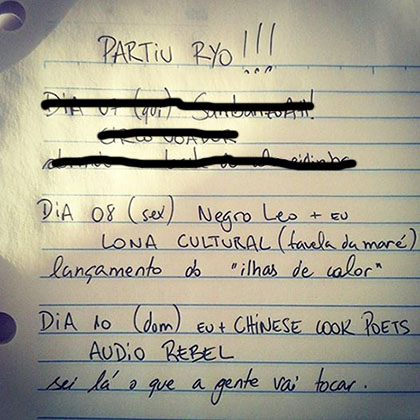 PARTIU RYO!!!
DIA 07 (qui)
CIRCO VOADOR
DIA 08 (sex) Negro Leo + EU
LONA CULTURAL (favela da maré)
lançamento do "ilhas de calor"
DIA 10 (dom) EU + CHINESE COOK POETS
AUDIO REBEL
sei lá o que a gente vai tocar.